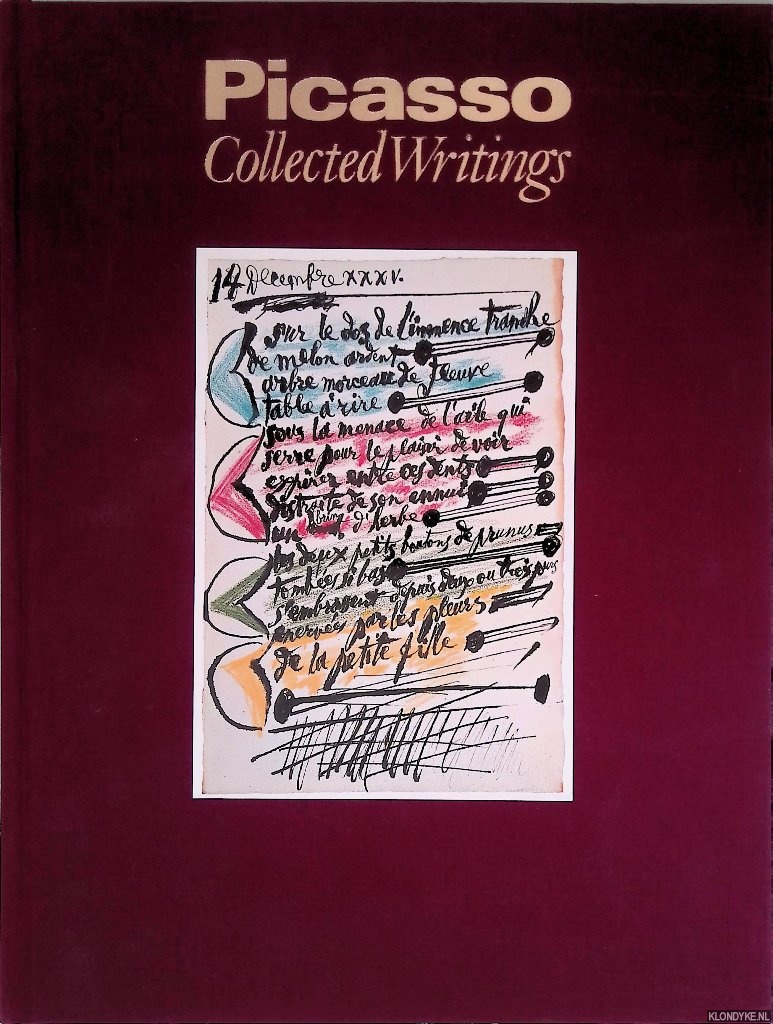 Picasso
Collected Writings
14 Decembre XXXV.
sur le dos de l'immence tranche
de melon ardent
arbre morceau de fleuve
table à rire
sous la menace de l'aile qui
serre pour le plaisir de voir
expirer entre ces dents
distraite de son ennui
un brin d'herbe
les deux petits boutons de prunus
tombées si bas
s'embrassent depuis deux ou trois jours
enervés par les pleurs
de la petite fille
KLONDYKE.NL